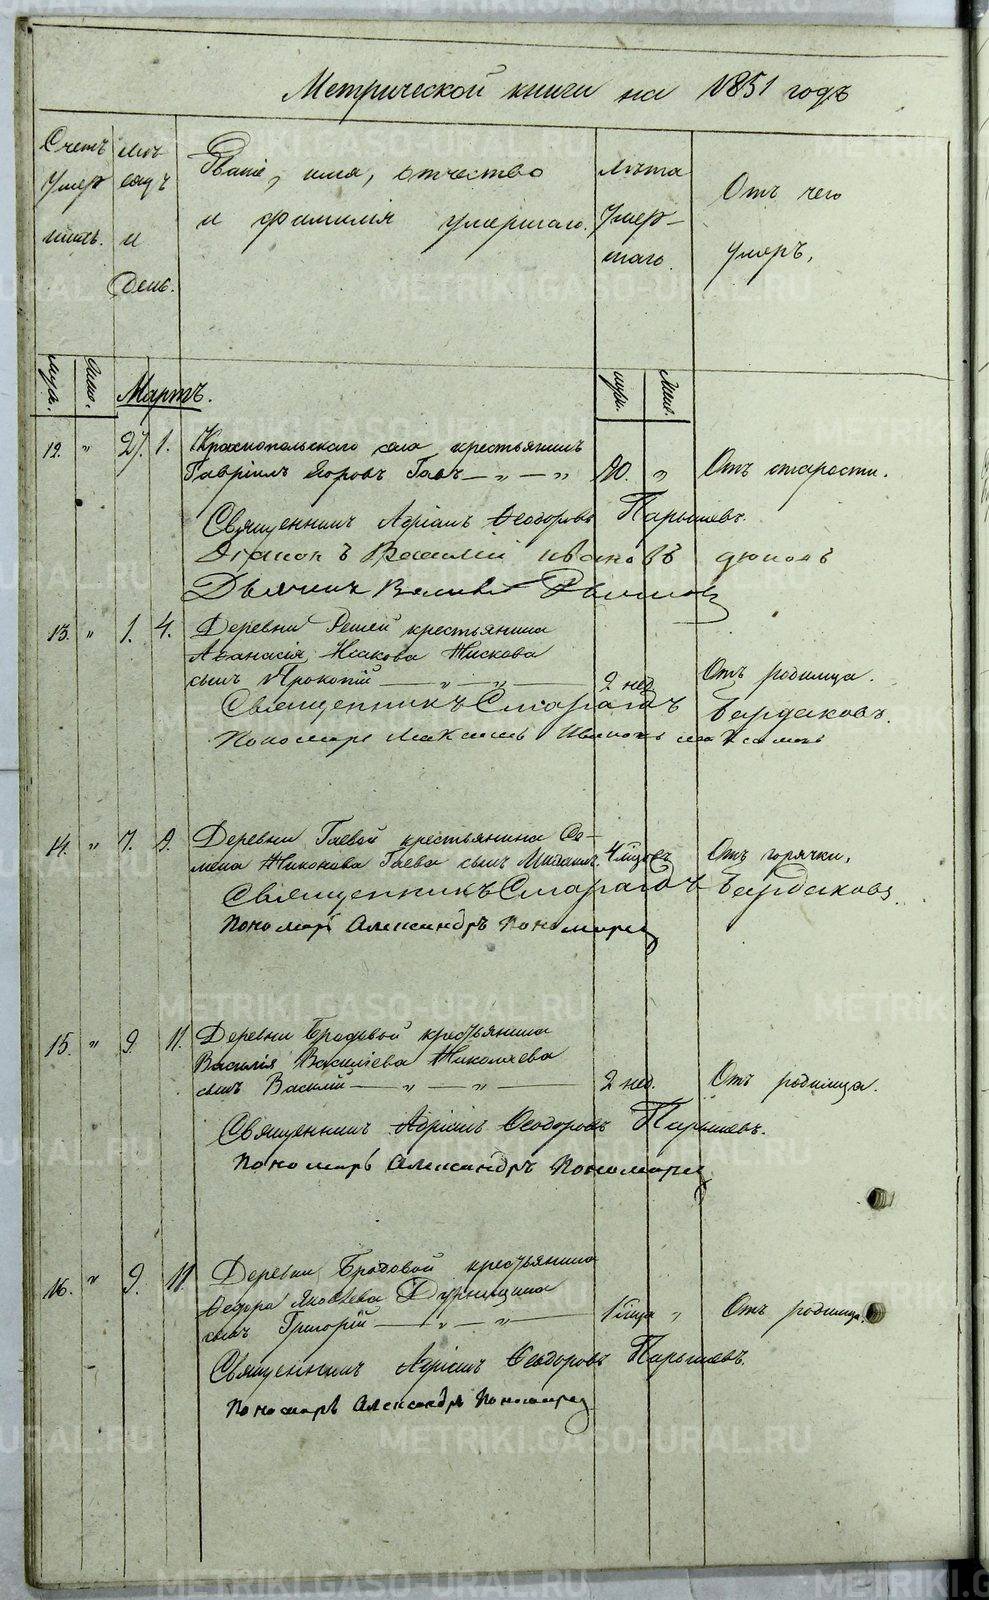 Метрической книги на 1851 годъ
Счетъ умершихъ.
Мѣсяцъ и день.
Званіе, имя, отчество
и фамилія умершаго.
Лѣта умершаго.
Отъ чего
умеръ.
муж. жен. Мартъ. муж. жен.
12. " 27. 1. Краснопольскаго села крестьянинъ
Гавріилъ Егоровъ Гаевъ — " — " 80. " Отъ старости.
Священникъ Адріанъ Ѳеодоровъ Парышевъ.
Діаконъ Василій Ивановъ
Дьячекъ
13. " 1. 4. Деревни Решей крестьянина
Аѳанасія Исакова Жискова
сынъ Прокопій — " — " — 2 нед. Отъ родимца.
Священникъ Смарагдъ Бардаковъ.
Пономарь Максимъ
14. " 7. 9. Деревни Гаевой крестьянина Се-
мена Никонова Гаева сынъ Михаилъ. 4 мѣсцовъ Отъ горячки.
Священникъ Смарагдъ Бардаковъ.
Пономарь Александръ Пономаревъ
15. " 9. 11. Деревни Бродовой крестьянина
Василія Василіева Николаева
сынъ Василій — " — " — 2 нед. Отъ родимца.
Священникъ Адріанъ Ѳеодоровъ Парышевъ.
Пономарь Александръ Пономаревъ
16. " 9. 11. Деревни Бродовой крестьянина
Ѳедора Яковлева Дурницына
сынъ Григорій — " — " — 1 мѣсца " Отъ родимца.
Священникъ Адріанъ Ѳеодоровъ Парышевъ.
Пономарь Александръ Пономаревъ
METRIKI.GASO-URAL.RU